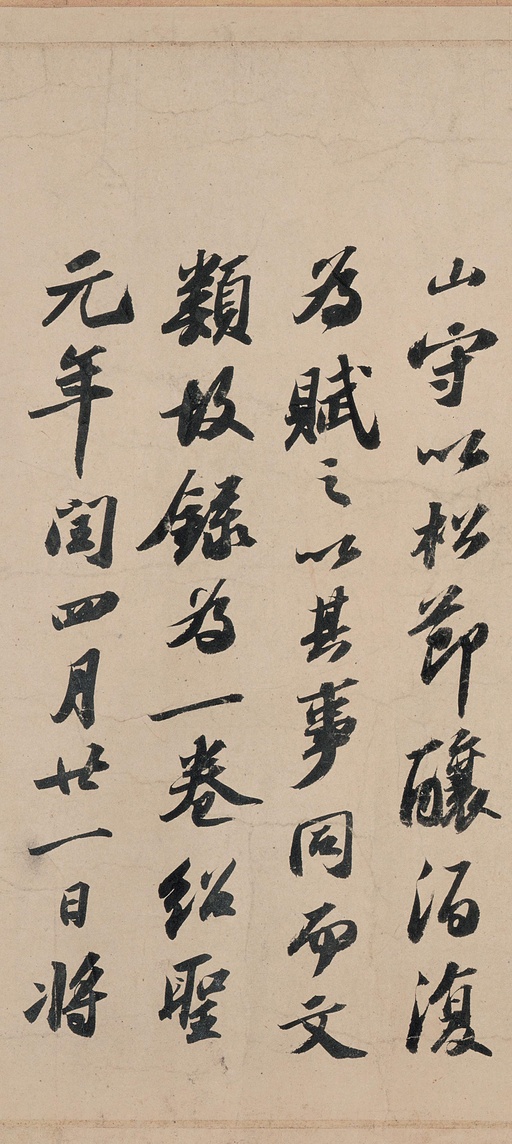 山守以松節釀酒復
為賦之以其事同而文
類故録為一卷紹聖
元年閏四月廿一日将